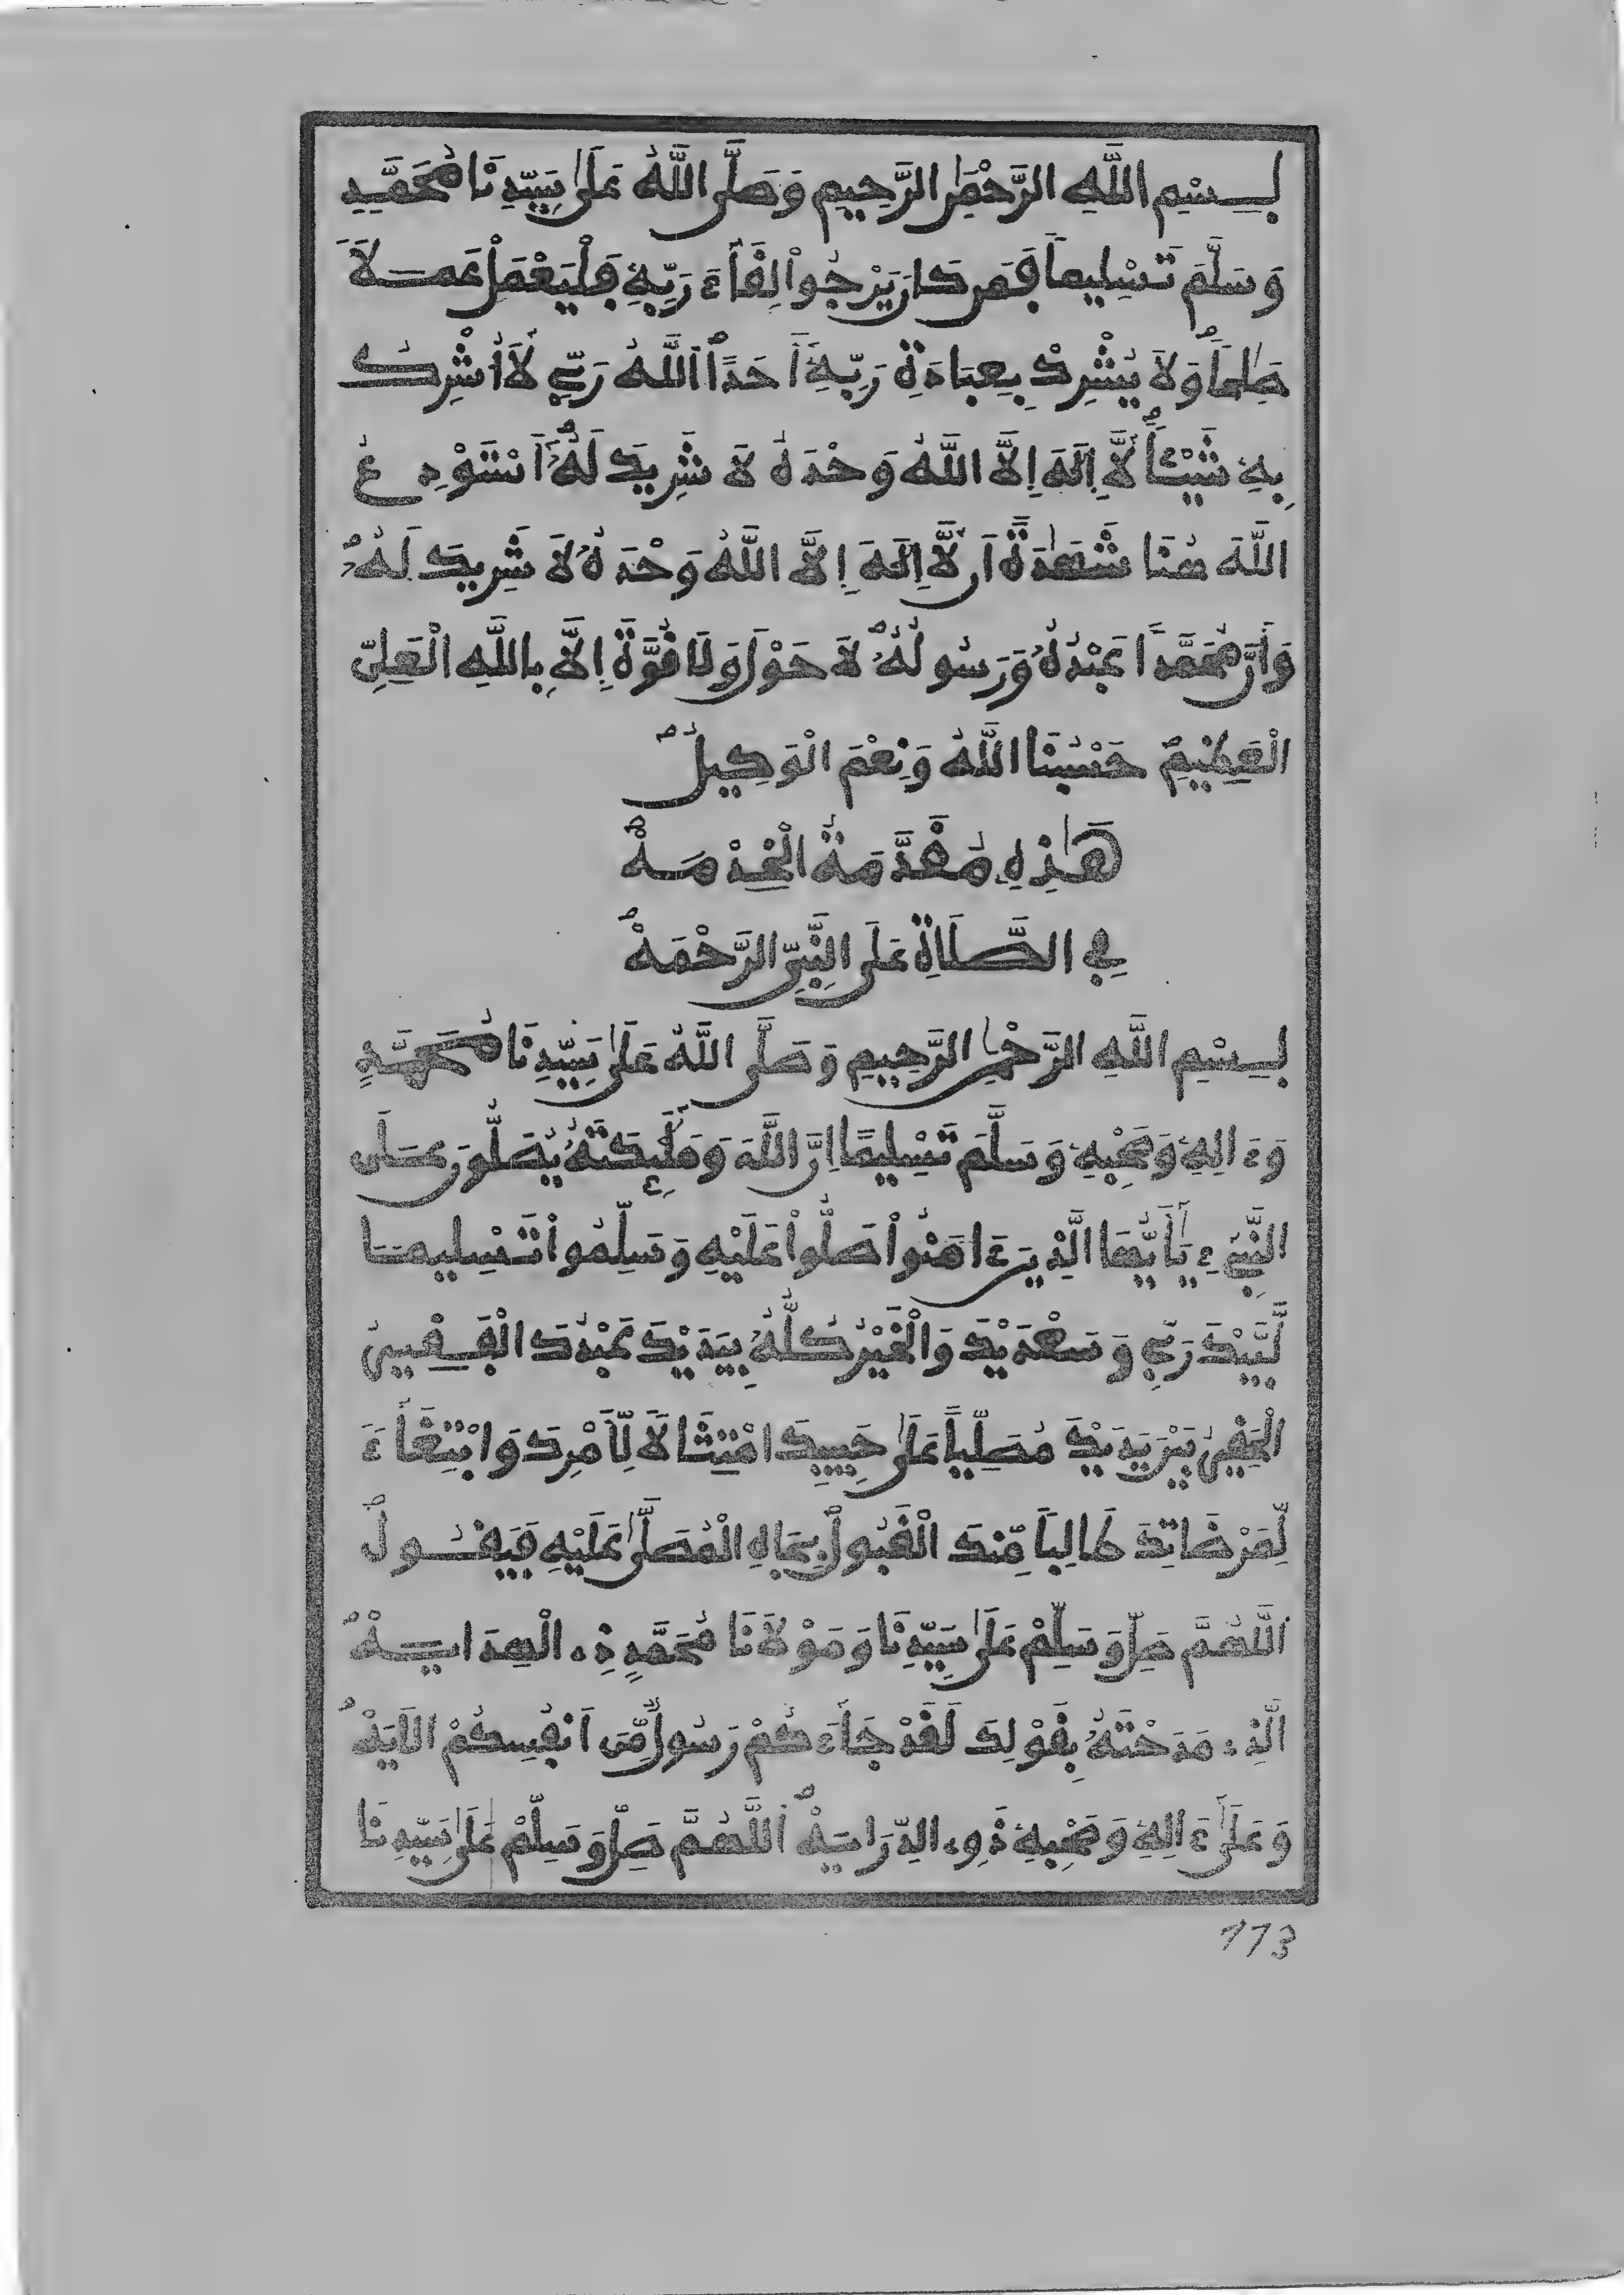 بِسْمِ اللَّهِ الرَّحْمَٰنِ الرَّحِيمِ وَصَلَّى اللَّهُ عَلَىٰ سَيِّدِنَا مُحَمَّدٍ
وَسَلَّمَ تَسْلِيماً فَمَن كَانَ يَرْجُواْ لِقَآءَ رَبِّهِ فَلْيَعْمَلْ عَمَــلاً
صَٰلِحاً وَلَا يُشْرِكْ بِعِبَادَةِ رَبِّهِ أَحَدًا اَللَّهُ رَبِّي لَا أُشْرِكُ
بِهِ شَيْـٔاً لَّا إِلَهَ إِلَّا اللَّهُ وَحْدَهُ لَا شَرِيكَ لَهُ أَسْتَوْدِعُ
اللَّهَ هُنَا شَهَٰدَةَ أَن لَّا إِلَهَ إِلَّا اللَّهُ وَحْدَهُ لَا شَرِيكَ لَهُ
وَأَنَّ مُحَمَّداً عَبْدُهُ وَرَسُولُهُ لَا حَوْلَ وَلَا قُوَّةَ إِلَّا بِاللَّهِ الْعَلِيِّ
الْعَظِيمِ حَسْبُنَا اللَّهُ وَنِعْمَ الْوَكِيلُ
هَٰذِهِ مُقَدَّمَةُ الْخِدْمَــهْ
فِي الصَّلَاةِ عَلَى النَّبِيِّ الرَّحْمَهْ
بِسْمِ اللَّهِ الرَّحْمَٰنِ الرَّحِيمِ وَصَلَّى اللَّهُ عَلَىٰ سَيِّدِنَا مُحَمَّدٍ
وَءَالِهِ وَصَحْبِهِ وَسَلَّمَ تَسْلِيمًا إِنَّ اللَّهَ وَمَلَٰٓئِكَتَهُ يُصَلُّونَ عَلَى
النَّبِيءِ يَٰٓأَيُّهَا الَّذِينَ ءَامَنُواْ صَلُّواْ عَلَيْهِ وَسَلِّمُواْ تَسْلِيمــا
لَبَّيْكَ رَبِّي وَسَعْدَيْكَ وَالْخَيْرُ كُلُّهُ بِيَدَيْكَ عَبْدُكَ الْفَــقِيرُ
الْحَقِيرُ بَيْنَ يَدَيْكَ مُصَلِّياً عَلَىٰ حَبِيبِكَ امْتِثَالاً لِّأَمْرِكَ وَابْتِغَآءَ
لِّمَرْضَاتِكَ طَالِباً مِّنكَ الْقَبُولَ بِجَاهِ الْمُصَلَّىٰ عَلَيْهِ فَيَقُــولُ
اللَّهُمَّ صَلِّ وَسَلِّمْ عَلَىٰ سَيِّدِنَا وَمَوْلَانَا مُحَمَّدٍ ذِي الْهِدَايَــهْ
الَّذِي مَدَحْتَهُ بِقَوْلِكَ لَقَدْ جَآءَكُمْ رَسُولٌ مِّنَ اَنفُسِكُمْ الَايَهْ
وَعَلَىٰٓ ءَالِهِ وَصَحْبِهِ ذَوِي الدِّرَايَهْ اَللَّهُمَّ صَلِّ وَسَلِّمْ عَلَىٰ سَيِّدِنَا
173